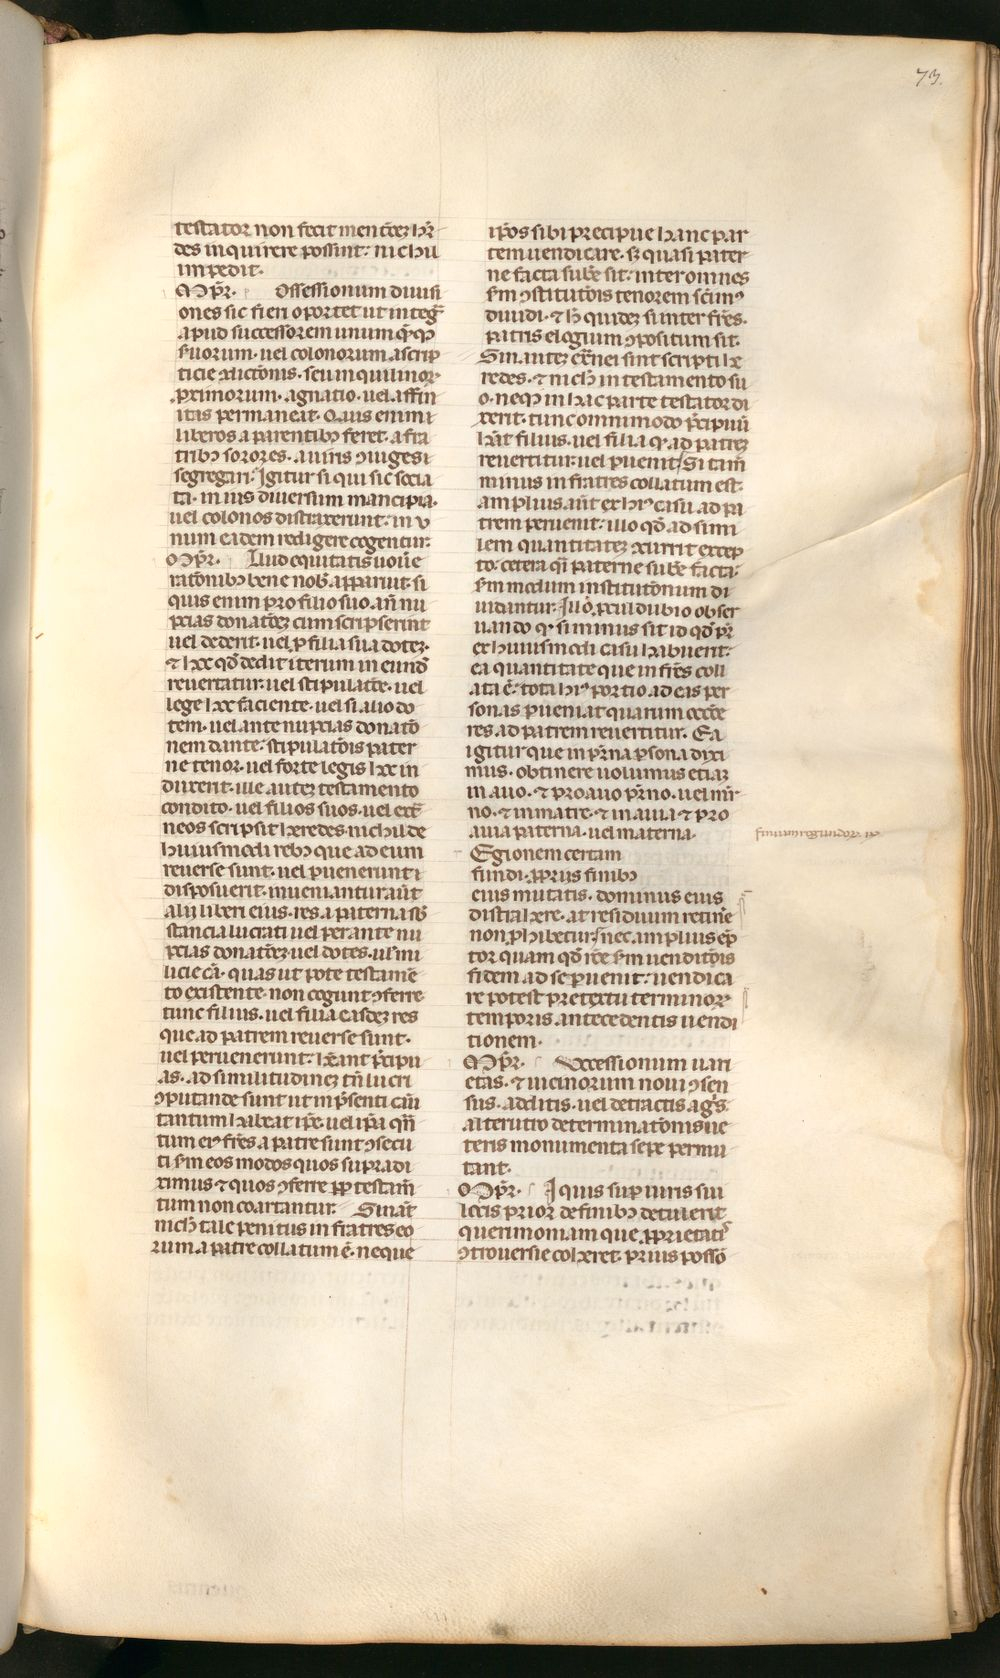 73.
testator non fecit mentōez hr̄e
des inquirere possint: nichil
impedit.
Mpr̄. Ossessionum diuisi
ones sic fieri oportet ut integr̄
apud successorem unum q̄mq̄
suorum. uel colonorum ascrip
ticie ꝯdictōnis. seu inquilinoꝝ
ꝓximorum. agnatio. uel affin
itas permaneat. Quis enim
liberos a parentibꝰ ferat. a fra
tribꝰ sorores. a uiris ꝯiuges
segregari: Igitur si qui sic socia
ta. in ius diuersum mancipia.
uel colonos distraxerunt: in v
num eadem redigere cogentur.
Mpr̄. Illud equitatis uoiūe
ratōnibꝰ bene nob̄ apparuit. si
quis enim pro filio suo. an̄ nu
pcias donatōez cum scripserint
uel dederit. uel ꝑ filia sua dotez.
⁊ hec qd̄ dedit iterum in eund̄
reuertatur. uel stipulatōe. uel
lege hec faciente. uel si alio do
tem. uel ante nupcias donatō
nem dante: stipulatōis pater
ne tenor. uel forte legis hec in
duxerit. ille autez testamento
condito. uel filios suos. uel extr̄
neos scripsit heredes. nichil de
huiusmodi rebꝰ que ad eum
reuerse sunt. uel ꝑuenerunt
disposuerit. inueniantur aūt
alij liberi eius. res a paterna sb̄
stancia lucrati uel per ante nu
pcias donatōez. uel dotes. ul̄ mi
licie cā. quas ut pote testamē
to existente. non cogunt ꝯferre
tunc filius. uel filia easdez res
que ad patrem reuerse sunt.
uel peruenerunt. hēant p̄cipu
as. ad similitudinez tn̄ lucri
ꝯputande sunt ut in p̄senti cāu
tantum habeat ip̄e. uel ip̄a qn̄
tum eiꝰ fr̄es a patre sunt ꝯsecu
ti scd̄m eos modos quos supradi
ximus ⁊ quos ꝯferre ꝓp testam̄
tum non coartantur. Sin aūt
nich̄ tale penitus in fratres eo
rum a patre collatum ē. neque
ip̄os sibi precipue hanc par
tem uendicare. sꝫ quasi pater
ne facta subē sit: inter omnes
scd̄m ꝯstitutōis tenorem scīmꝰ
diuidi. ⁊ h̄ quidez si inter fr̄es.
patris elogium ꝯpositum sit.
Sin autez ext̄nei sint scripti he
redes. ⁊ nich̄ in testamento su
o. neqꝫ in hac parte testator di
xerit. tunc omnimodo p̄cipuū
hēat filius. uel filia qꝫ ad patrez
reuertitur. uel ꝑuenit Si tam̄
minus in fratres collatum est.
amplius aūt ex hꝰ casu ad pa
trem peruenit: illo qd̄ ad simi
lem quantitatez ꝯcurrit excep
to. cetera qsi paterne subē facta
scd̄m modum institutōnum di
uidantur. Illo ꝓcul dubio obser
uando qꝫ si minus sit id qd̄ pr̄
ex huiusmodi casu habuerit:
ea quantitate que in fr̄es coll
ata ē. tota hꝰ portio ad eas per
sonas ꝑueniat quarum occōe
res ad patrem reuertitur. Ea
igitur que in pr̄na ꝑsona dixi
mus. obtinere uolumus etiaꝫ
in auo. ⁊ proauo pr̄no. uel mr̄
no. ⁊ in matre. ⁊ in auia ⁊ pro
auia paterna. uel materna.
Egionem certam
fundi. ꝓprijs finibꝰ
eius mutatis. dominus eius
distrahere. at residuum retinē
non ꝓhibetur. nec amplius ēp
tor quam qd̄ ip̄e scd̄m uenditōis
fidem ad se ꝑuenit: uendica
re potest pretextu terminoꝝ
temporis antecedentis uendi
tionem.
Mpr̄. Uccessionum uari
etas. ⁊ uicinorum noui ꝯsen
sus. additis. uel detractis agr̄s.
alterutro determinatōnis ue
teris monumenta sepe permu
tant.
Mpr̄. I quis sup̄ iuris sui
locis prior de finibꝰ detulerit
querimoniam que ꝓprietati
ꝯtrouersie coheret. prius possō
finium regundoꝝ.